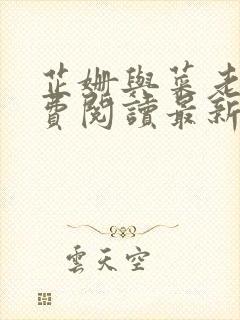 芷姍與菜老
費閱讀最新
雲天空